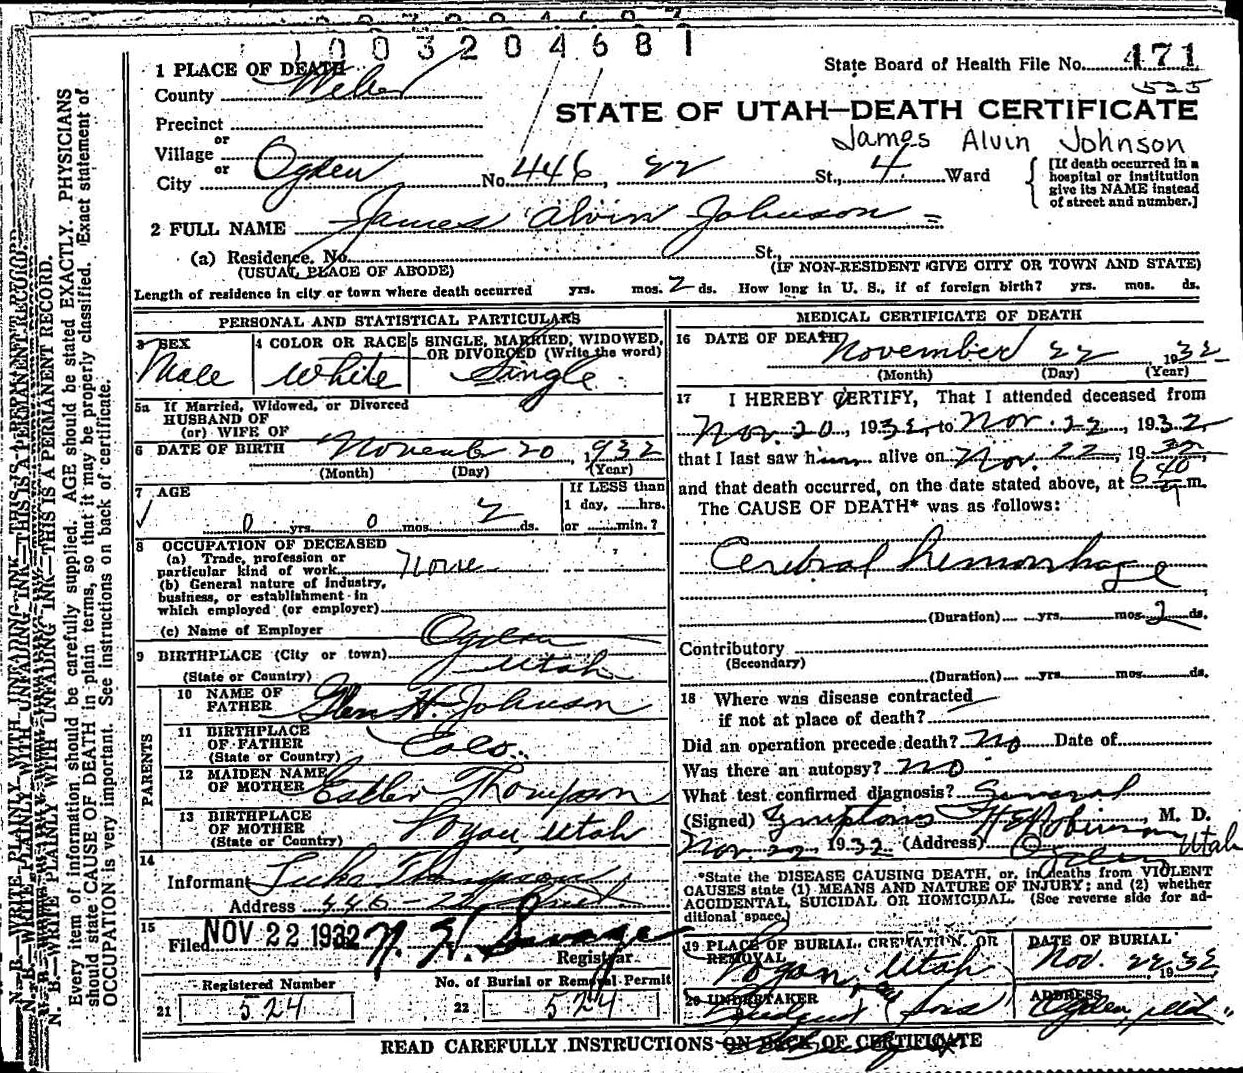 1003204681
1 PLACE OF DEATH
State Board of Health File No. 471
525
County Weber
STATE OF UTAH—DEATH CERTIFICATE
Precinct
James Alvin Johnson
or
Village
or
City Ogden No. 446, 22 St., 4. Ward
[If death occurred in a hospital or institution give its NAME instead of street and number.]
2 FULL NAME James Alvin Johnson
(a) Residence. No. St.,
(USUAL PLACE OF ABODE) (IF NON-RESIDENT GIVE CITY OR TOWN AND STATE)
Length of residence in city or town where death occurred yrs. mos. 2 ds. How long in U. S., if of foreign birth? yrs. mos. ds.
PERSONAL AND STATISTICAL PARTICULARS
3 SEX
Male
4 COLOR OR RACE
White
5 SINGLE, MARRIED, WIDOWED,
OR DIVORCED (Write the word)
Single
5a If Married, Widowed, or Divorced
HUSBAND OF
(or) WIFE OF
6 DATE OF BIRTH November 20, 1932
(Month) (Day) (Year)
7 AGE
0 yrs. 0 mos. 2 ds.
If LESS than
1 day, hrs.
or min.?
8 OCCUPATION OF DECEASED
(a) Trade, profession or
particular kind of work None
(b) General nature of industry,
business, or establishment in
which employed (or employer)
(c) Name of Employer
9 BIRTHPLACE (City or town) Ogden
(State or Country) Utah
PARENTS
10 NAME OF
FATHER Glen H. Johnson
11 BIRTHPLACE
OF FATHER Colo.
(State or Country)
12 MAIDEN NAME
OF MOTHER Esther Thompson
13 BIRTHPLACE
OF MOTHER Logan, Utah
(State or Country)
14
Informant Thompson
Address 446 - 22 Street
15
Filed NOV 22 1932
Registrar
Registered Number
21 524
No. of Burial or Removal Permit
22 524
MEDICAL CERTIFICATE OF DEATH
16 DATE OF DEATH November 22 1932
(Month) (Day) (Year)
17 I HEREBY CERTIFY, That I attended deceased from
Nov. 20, 1932, to Nov. 22, 1932,
that I last saw him alive on Nov. 22, 1932,
and that death occurred, on the date stated above, at 6 40 m.
The CAUSE OF DEATH* was as follows:
Cerebral hemorrhage
(Duration) yrs. mos. 2 ds.
Contributory
(Secondary)
(Duration) yrs. mos. ds.
18 Where was disease contracted
if not at place of death?
Did an operation precede death? No Date of
Was there an autopsy? No
What test confirmed diagnosis? General
(Signed) Symptoms Robinson, M. D.
Nov. 22 1932 (Address) Ogden Utah
*State the DISEASE CAUSING DEATH, or, in deaths from VIOLENT
CAUSES state (1) MEANS AND NATURE OF INJURY; and (2) whether
ACCIDENTAL, SUICIDAL OR HOMICIDAL. (See reverse side for ad-
ditional space.)
19 PLACE OF BURIAL, CREMATION, OR
REMOVAL
Logan, Utah
DATE OF BURIAL
Nov. 22, 1932
20 UNDERTAKER
Sons
ADDRESS
Ogden, Utah
READ CAREFULLY INSTRUCTIONS ON BACK OF CERTIFICATE
N. B.—WRITE PLAINLY WITH UNFADING INK—THIS IS A PERMANENT RECORD.
Every item of information should be carefully supplied. AGE should be stated EXACTLY. PHYSICIANS
should state CAUSE OF DEATH in plain terms, so that it may be properly classified. Exact statement of
OCCUPATION is very important. See instructions on back of certificate.